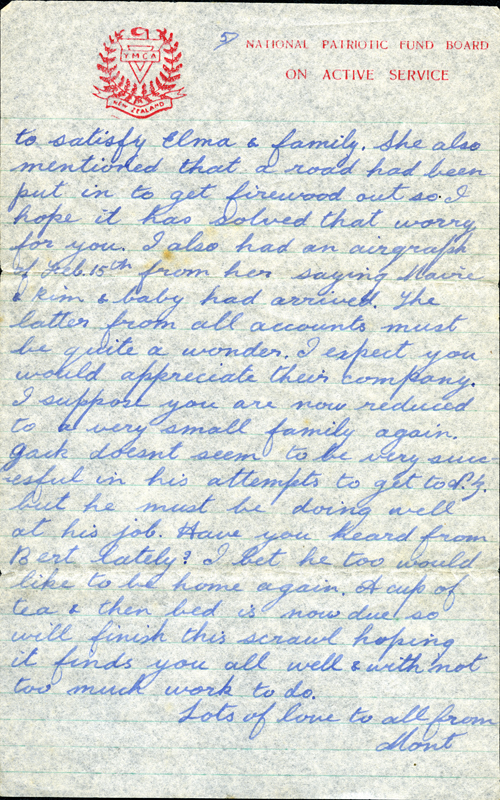 YMCA
NEW ZEALAND
5
NATIONAL PATRIOTIC FUND BOARD
ON ACTIVE SERVICE
to satisfy Elma & family. She also
mentioned that a road had been
put in to get firewood out so I
hope it has solved that worry
for you. I also had an airgraph
of Feb. 15th from her saying Mavie
& Kim & baby had arrived. The
latter from all accounts must
be quite a wonder. I expect you
would appreciate their company.
I suppose you are now reduced
to a very small family again.
Jack doesnt seem to be very succ
esful in his attempts to get to N.Z.
but he must be doing well
at his job. Have you heard from
Bert lately? I bet he too would
like to be home again. A cup of
tea & then bed is now due so
will finish this scrawl hoping
it finds you all well & with not
too much work to do.
Lots of love to all from
Mont